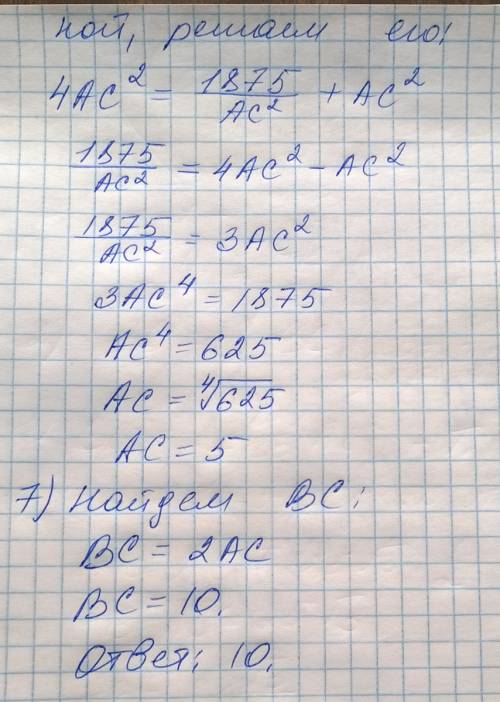 ной, решаем его:
4AC² = 1875/AC² + AC²
1875/AC² = 4AC² - AC²
1875/AC² = 3AC²
3AC⁴ = 1875
AC⁴ = 625
AC = ⁴√625
AC = 5
7) Найдем BC:
BC = 2AC
BC = 10.
Ответ: 10.